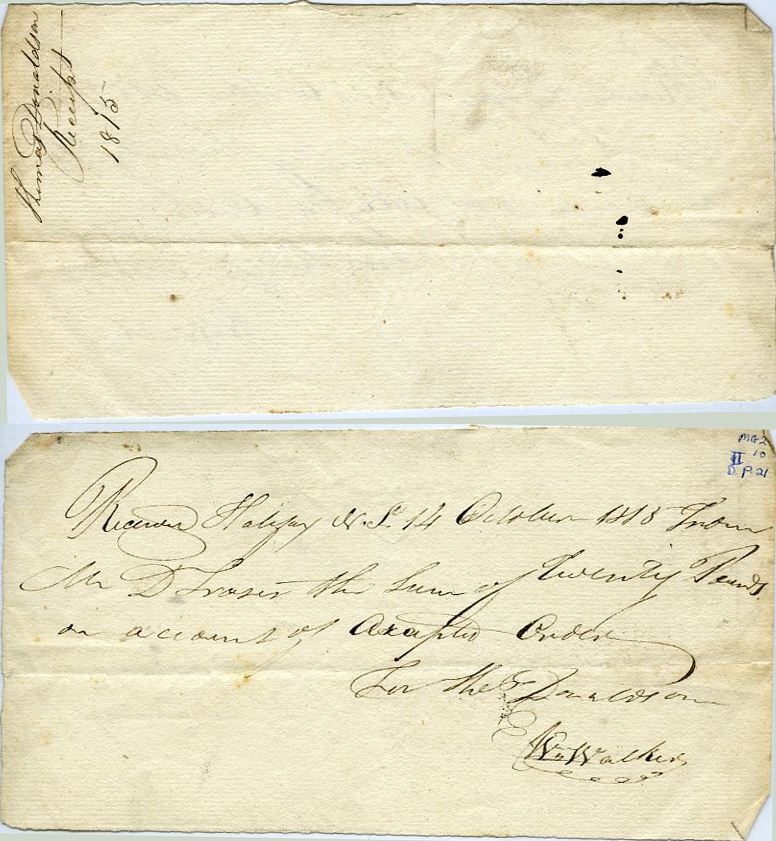 Thomas Donaldson
Receipt
1815
MG2
II 10
D. P. 21
Received Halifax N.S. 14 October 1815 From
Mr D Fraser the Sum of Twenty Pounds
on account of Excepted Order
For Thos Donaldson
Wm Walker